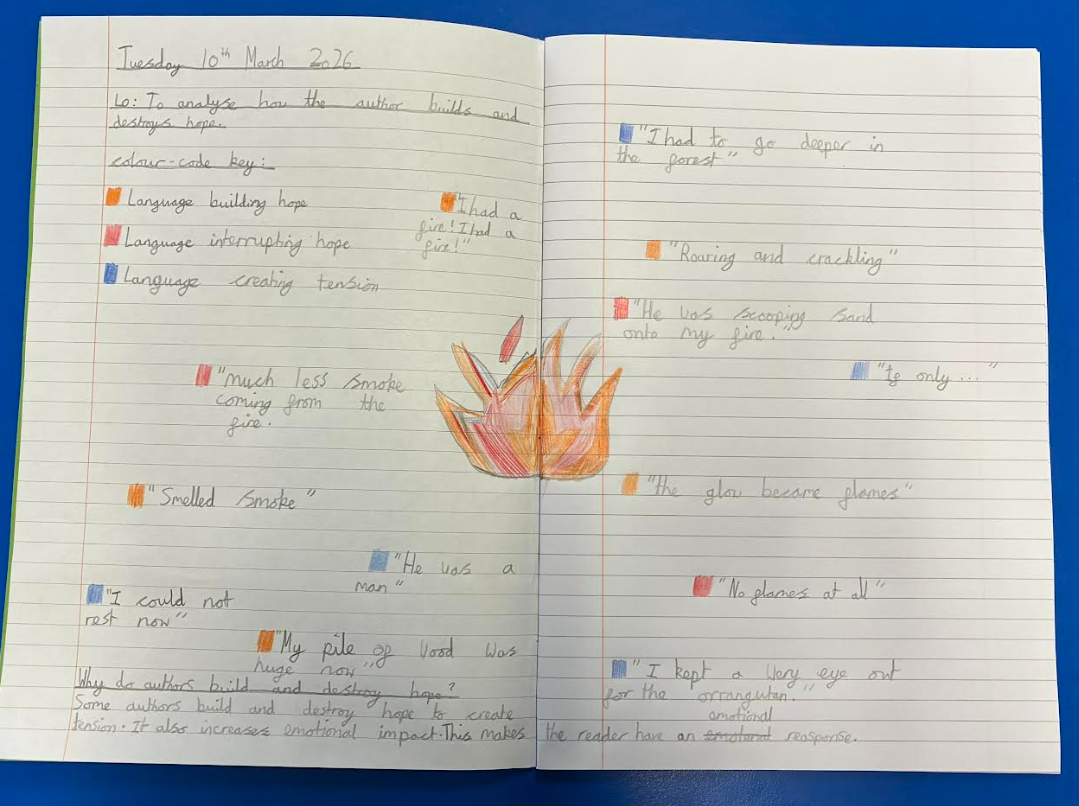 Tuesday 10th March 2026
Lo: To analyse how the author builds and
destroys hope.
colour-code key:
Language building hope
Language interrupting hope
Language creating tension
"I had a
fire! I had a
fire!"
"much less smoke
coming from the
fire.
"Smelled smoke"
"He was a
man"
"I could not
rest now"
"My pile of wood was
huge now"
Why do authors build and destroy hope?
Some authors build and destroy hope to create
tension. It also increases emotional impact. This makes
"I had to go deeper in
the forest"
"Roaring and crackling"
"He was scooping sand
onto my fire."
"If only ..."
"the glow became flames"
"No flames at all"
"I kept a wery eye out
for the orrangutan."
emotional
the reader have an emotional reasponse.